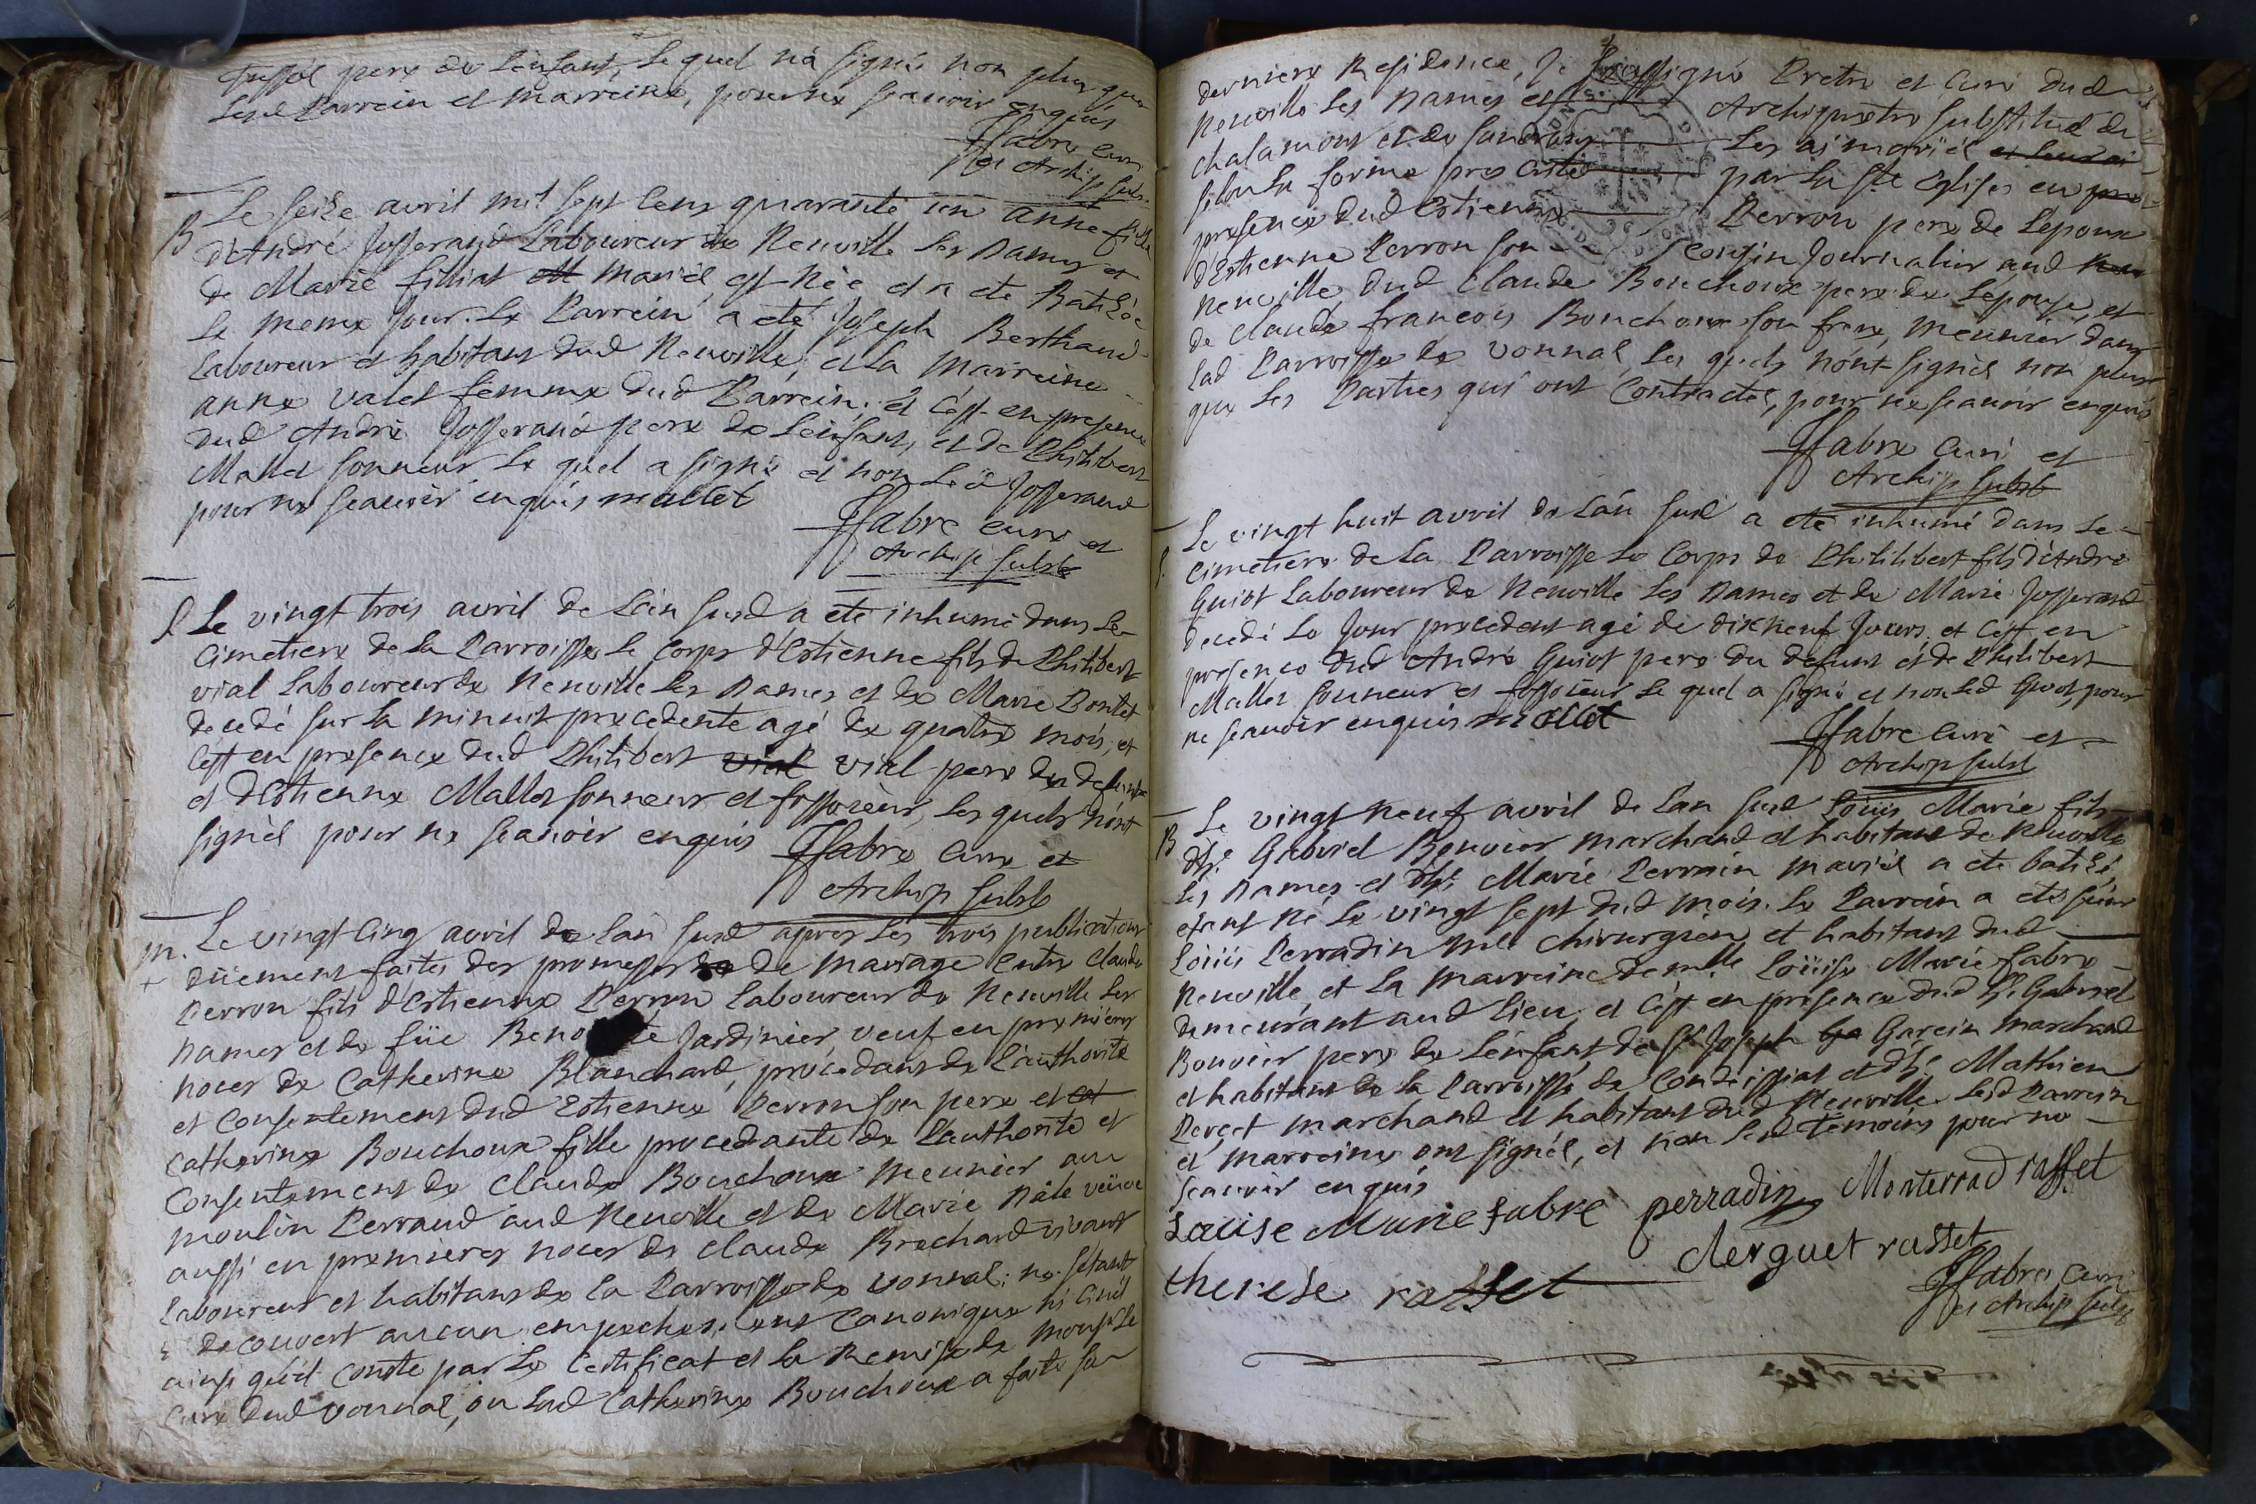 pere de L'enfant, le quel n'a signé non plus que
Lesd Parrein et marreine, pour ne sçauoir enquis
ffabre curé
et Archip subst.
B Le seize avril mil sept cens quarante un anne fille
d'André Josserand Laboureur de Neuville les Dames et
de Marie filliat et mariés est née et a été Batisée
le meme jour. Le Parrein a eté Joseph Berthaud
Laboureur et habitant dud Neuville, et La marreine
anne valet femme dud Parrein. et c'est en presence
dud André Josserand pere de L'enfant, et de Philibert
Mallet sonneur le quel a signé et non led Josserand
pour ne sçauoir enquis mallet
ffabre curé et
Archip subst
S Le vingt trois avril de L'an susd a eté inhumé dans Le
Cimetiere de La Parroisse le corps d'Estienne fils de Philibert
vial Laboureur de Neuville les Dames et de Marie Bontet
decedé sur la minuit precedente agé de quatre mois, et
c'est en presence dud Philibert vial vial pere du defunt
et d'Estienne Mallet sonneur et fossoieur, les quels n'ont
signés pour ne sçauoir enquis ffabre curé et
Archip subst
m. Le vingt cinq avril de L'an susd apres les trois publications
+ düement faites des promesses de de mariage entre claude
Perron fils d'Estienne Perron Laboureur de Neuville les
Dames et de füe Beno te Jardinier, veuf en premieres
noces de Catherine Blanchard, procedant de L'authorité
et consentement dud Estienne Perron son pere et et
Catherine Bouchoux fille procedante de L'authorité et
consentement de Claude Bouchoux meunier au
moulin Perraud aud Neuville et de Marie Nale veüve
aussi en premieres noces de Claude Brochard vivant
Laboureur et habitant de La Parroisse de vonnas; ne s'etant
decouvert aucun empechement canonique ni civil
ainsi qu'il conste par le certificat et la Remise de mons le
curé dud vonnas, ou lad Catherine Bouchoux a faite sa
derniere Residence, Je soussigné Pretre et Curé dud
Neuville les Dames et Archipretre substitué de
chalamont et de sandrans Les ai mariés et leur ai
selon la forme prescrite par La ste Eglise en pre
presence dud Estienne Perron pere de L'epoux
d'Estienne Perron son cousin Journalier aud Neu
Neuville, dud Claude Bouchoux pere de L'epouse, et
de Claude francois Bouchoux son frere, meunier dans
Lad Parroisse de vonnas, les quels n'ont signés non plus
que les Parties qui ont contractés, pour ne sçauoir enquis
ffabre curé et
Archip subst
S. Le vingt huit avril de L'an susd a eté inhumé dans Le
Cimetiere de La Parroisse le Corps de Philibert fils d'André
Guiot Laboureur de Neuville les Dames et de Marie Josserand
decedé Le Jour precedent agé de dixneuf Jours et c'est en
presence dud André Guiot pere du defunt et de Philibert
Mallet sonneur et fossoieur le quel a signé et non led Guiot, pour
ne sçauoir enquis mallet
ffabre curé et
Archip subst
B Le vingt neuf avril de L'an susd Loüis Marie fils
de Sr. Gabriel Bouvier marchand et habitant de Neuville
les Dames et de Marie Perronin mariés a eté batisé,
etant né le vingt sept dud mois. Le Parrein a eté sieur
Loüis Perradin me chirurgien et habitant dud
Neuville, et La marreine demlle Loüise Marie fabre
demeurant aud Lieu, et c'est en presence dud Sr. Gabriel
Bouvier pere de L'enfant, de Sr Joseph Ga Garcin marchand
et habitant de la Parroisse de Condeissiat et de Mathieu
Perret marchand et habitant dud Neuville. Lesd Parrein
et marreine ont signés, et non lesd temoins pour ne
sçauoir enquis
Louise Marie fabre perradin Monterrad rasset
therese rasset clerguet rasset
ffabre curé
et Archip subst